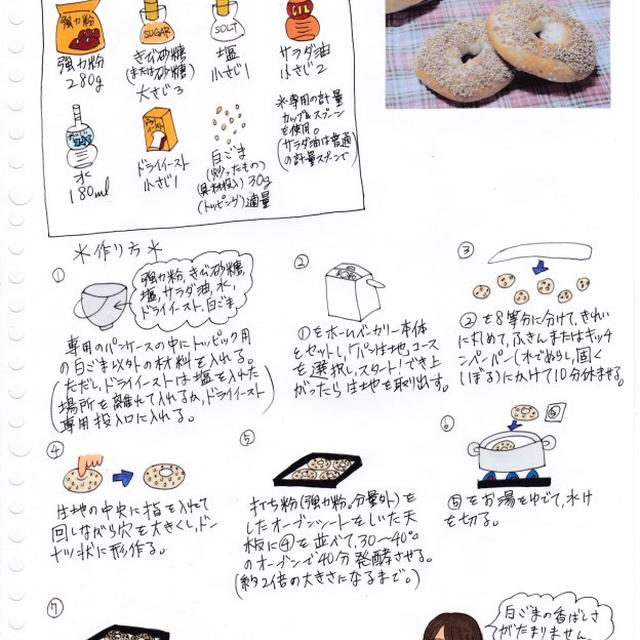 強力粉
SUGAR
SOLT
OIL
強力粉
280g
きび砂糖
(または砂糖)
大さじ3
塩
小さじ1
サラダ油
小さじ2
水
180ml
ドライイースト
小さじ1
白ごま
(炒ったもの)
(具材投入) 30g
(トッピング) 適量
※専用の計量
カップ&スプーン
を使用。
(サラダ油は普通
の計量スプーンで)
*作り方*
①
強力粉、きび砂糖、
塩、サラダ油、水、
ドライイースト、白ごま
専用のパンケースの中にトッピング用
の白ごま以外の材料を入れる。
(ただし、ドライイーストは塩を入れた
場所を離れて入れるか、ドライイースト
専用投入口に入れる。)
②
①をホームベーカリー本体
にセットし、「パン生地」コース
を選択し、スタート!でき上
がったら生地を取り出す。
③
②を8等分に分けて、きれい
に丸めて、ふきんまたはキッチ
ンペーパー(水でぬらし、固く
しぼる)にかけて10分休ませる。
④
生地の中央に指を入れて
回しながら穴を大きくし、ドー
ナツ状に形作る。
⑤
打ち粉(強力粉、分量外)を
したオーブンシートをしいた天
板に④を並べて、30〜40℃
のオーブンで40分発酵させる。
(約2倍の大きさになるまで。)
⑥
⑤
⑤をお湯でゆでて、水け
を切る。
⑦
白ごまの香ばしさ
がたまりません。